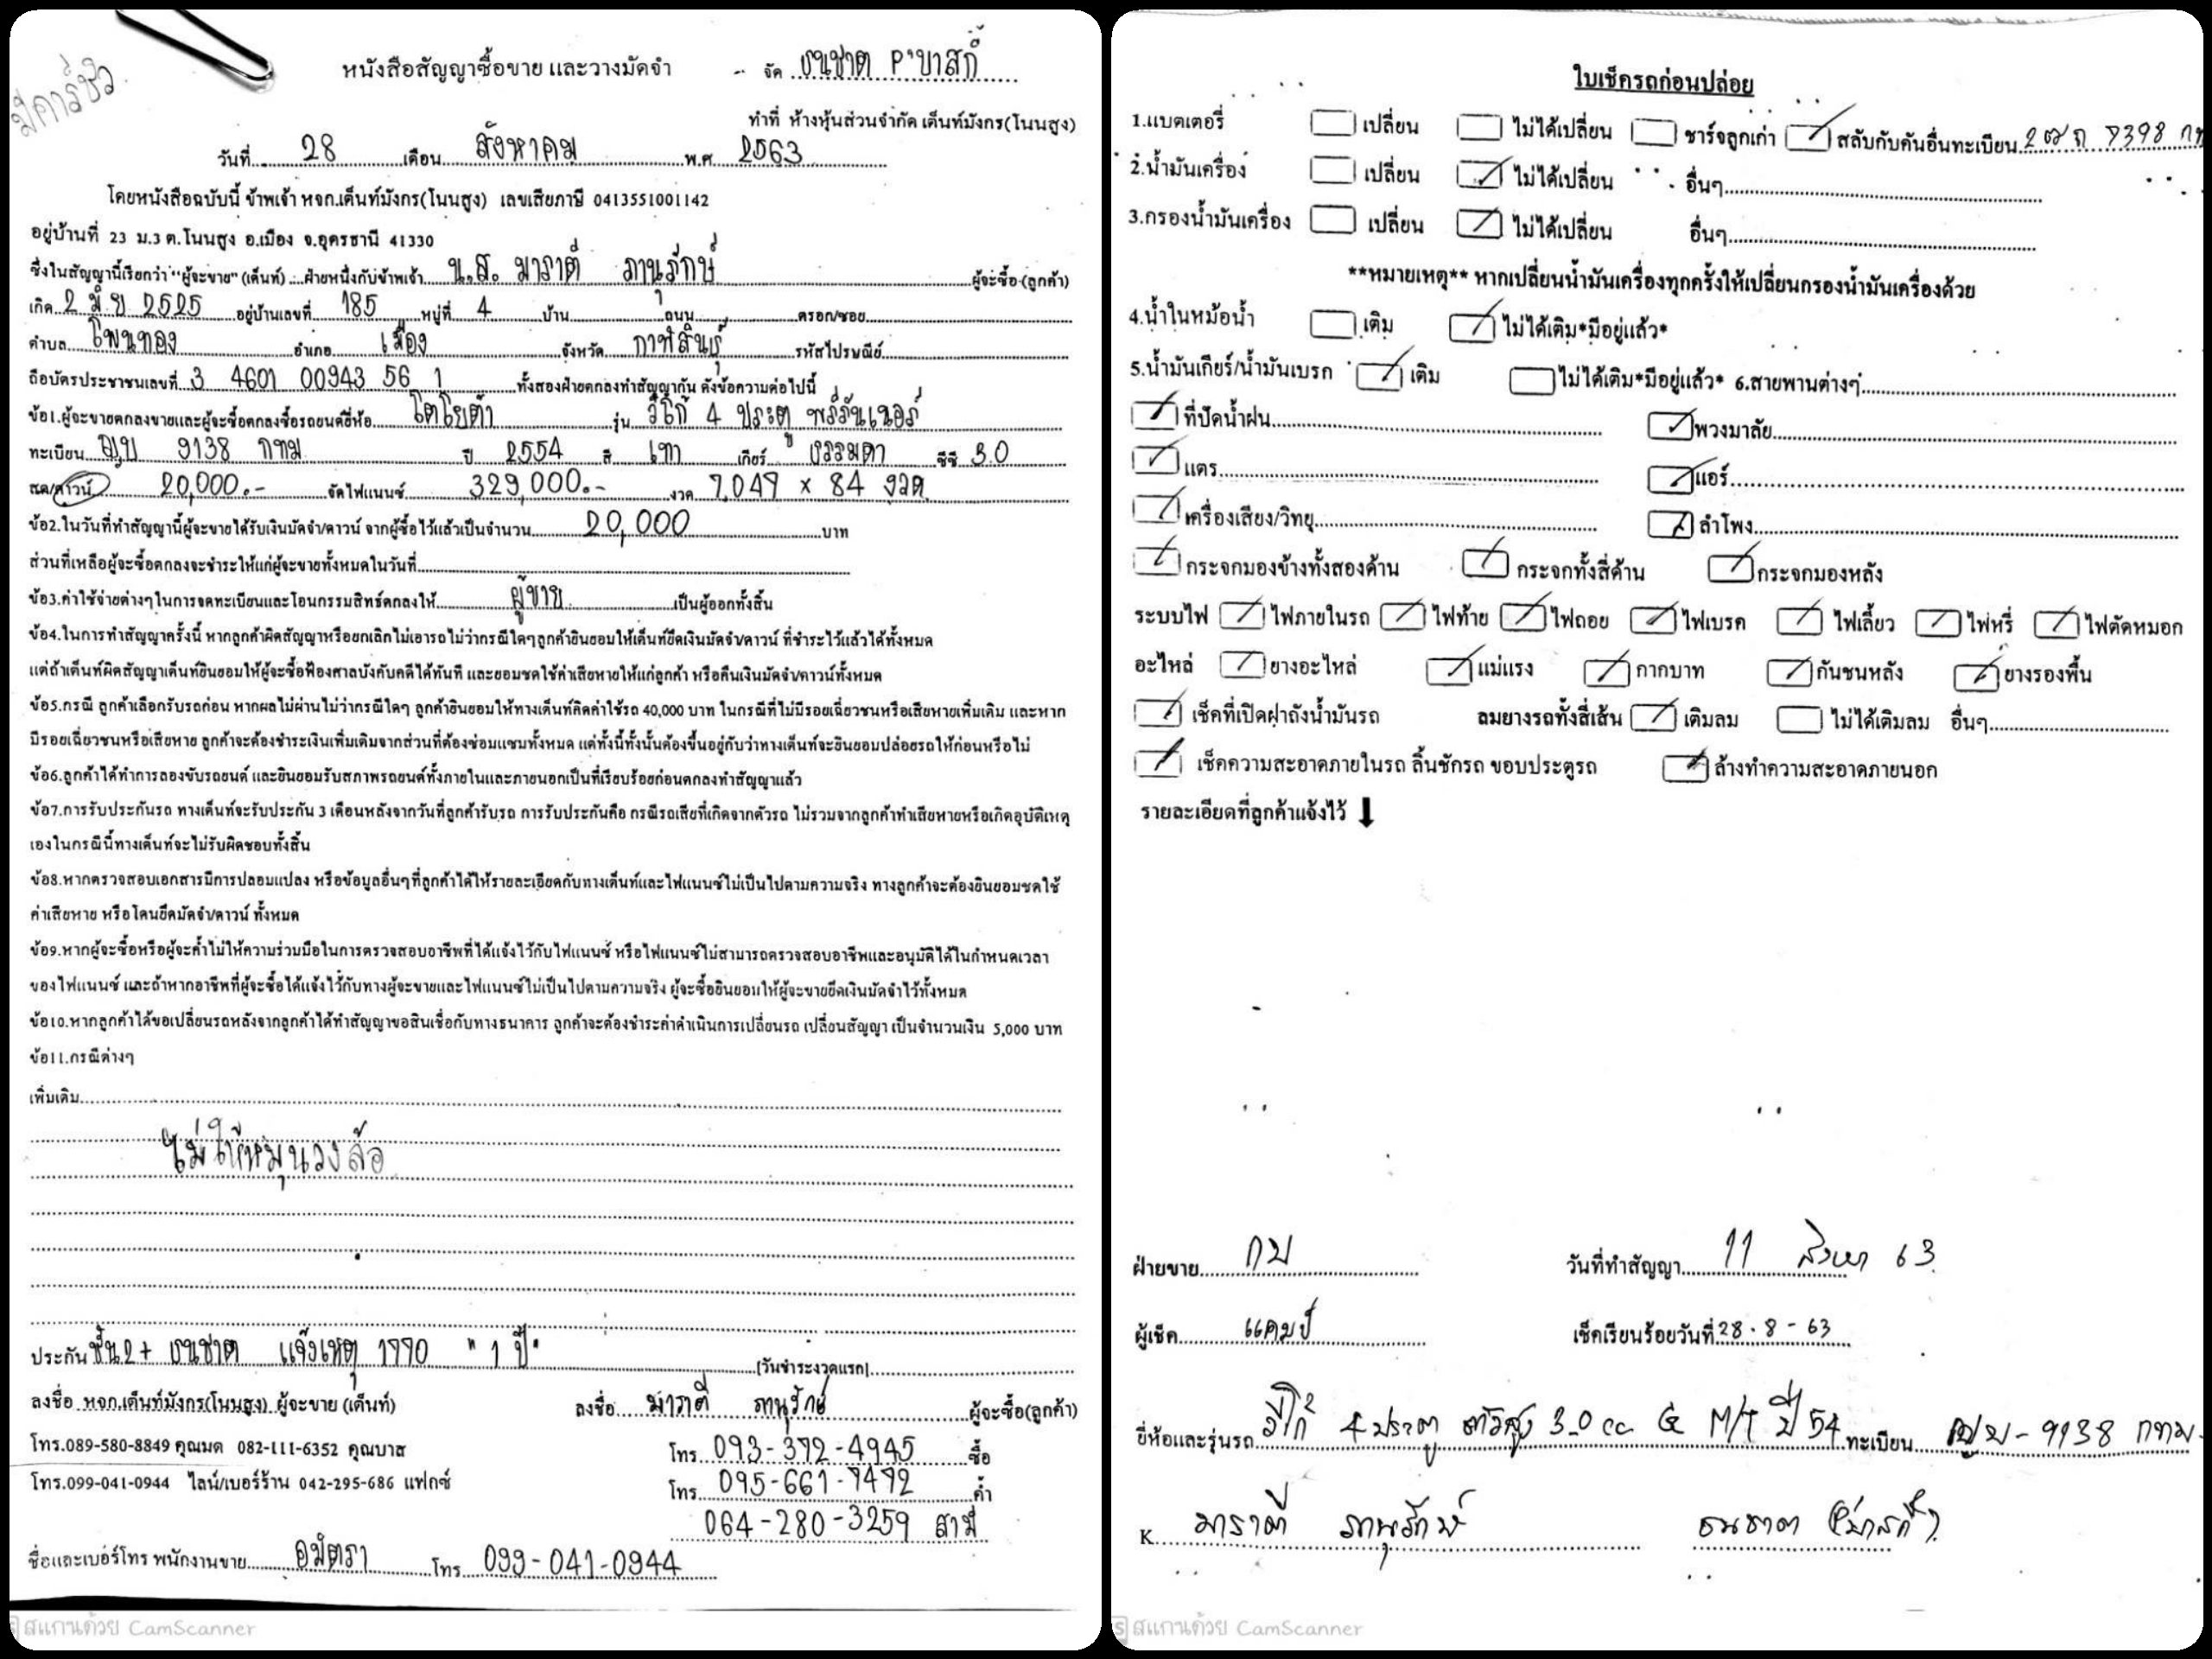 มีคาร์ชัว
หนังสือสัญญาซื้อขาย และวางมัดจำ จัด ธนชาต P'บาสกี้
ทำที่ ห้างหุ้นส่วนจำกัด เต็นท์มังกร(โนนสูง)
วันที่ 28 เดือน สิงหาคม พ.ศ 2563
โดยหนังสือฉบับนี้ ข้าพเจ้า หจก.เต็นท์มังกร(โนนสูง) เลขเสียภาษี 0413551001142
อยู่บ้านที่ 23 ม.3 ต.โนนสูง อ.เมือง จ.อุดรธานี 41330
ซึ่งในสัญญานี้เรียกว่า "ผู้จะขาย" (เต็นท์) ....ฝ่ายหนึ่งกับข้าพเจ้า น.ส. มาราตี ภานุรักษ์ ผู้จะซื้อ (ลูกค้า)
เกิด 2 มิ.ย 2525 อยู่บ้านเลขที่ 185 หมู่ที่ 4 บ้าน ถนน ตรอก/ซอย
ตำบล โพนทอง อำเภอ เมือง จังหวัด กาฬสินธุ์ รหัสไปรษณีย์
ถือบัตรประชาชนเลขที่ 3 4601 00943 56 1 ทั้งสองฝ่ายตกลงทำสัญญากัน ดังข้อความต่อไปนี้
ข้อ1.ผู้จะขายตกลงขายและผู้จะซื้อตกลงซื้อรถยนต์ยี่ห้อ โตโยต้า รุ่น วีโก้ 4 ประตู พรีรันเนอร์
ทะเบียน ฌบ 9138 กทม ปี 2554 สี เทา เกียร์ ธรรมดา ซีซี 3.0
สด/ดาวน์ 20,000.- จัดไฟแนนซ์ 329,000.- งวด 7,047 x 84 งวด
ข้อ2.ในวันที่ทำสัญญานี้ผู้จะขายได้รับเงินมัดจำ/ดาวน์ จากผู้ซื้อไว้แล้วเป็นจำนวน 20,000 บาท
ส่วนที่เหลือผู้จะซื้อตกลงจะชำระให้แก่ผู้จะขายทั้งหมดในวันที่
ข้อ3.ค่าใช้จ่ายต่างๆในการจดทะเบียนและโอนกรรมสิทธ์ตกลงให้ ผู้ขาย เป็นผู้ออกทั้งสิ้น
ข้อ4.ในการทำสัญญาครั้งนี้ หากลูกค้าผิดสัญญาหรือยกเลิกไม่เอารถไม่ว่ากรณีใดๆลูกค้ายินยอมให้เต็นท์ยึดเงินมัดจำ/ดาวน์ ที่ชำระไว้แล้วได้ทั้งหมด
แต่ถ้าเต็นท์ผิดสัญญาเต็นท์ยินยอมให้ผู้จะซื้อฟ้องศาลบังคับคดีได้ทันที และยอมชดใช้ค่าเสียหายให้แก่ลูกค้า หรือคืนเงินมัดจำ/ดาวน์ทั้งหมด
ข้อ5.กรณี ลูกค้าเลือกรับรถก่อน หากผลไม่ผ่านไม่ว่ากรณีใดๆ ลูกค้ายินยอมให้ทางเต็นท์คิดค่าใช้รถ 40,000 บาท ในกรณีที่ไม่มีรอยเฉี่ยวชนหรือเสียหายเพิ่มเติม และหาก
มีรอยเฉี่ยวชนหรือเสียหาย ลูกค้าจะต้องชำระเงินเพิ่มเติมจากส่วนที่ต้องซ่อมแซมทั้งหมด แต่ทั้งนี้ทั้งนั้นต้องขึ้นอยู่กับว่าทางเต็นท์จะยินยอมปล่อยรถให้ก่อนหรือไม่
ข้อ6.ลูกค้าได้ทำการลองขับรถยนต์ และยินยอมรับสภาพรถยนต์ทั้งภายในและภายนอกเป็นที่เรียบร้อยก่อนตกลงทำสัญญาแล้ว
ข้อ7.การรับประกันรถ ทางเต็นท์จะรับประกัน 3 เดือนหลังจากวันที่ลูกค้ารับรถ การรับประกันคือ กรณีรถเสียที่เกิดจากตัวรถ ไม่รวมจากลูกค้าทำเสียหายหรือเกิดอุบัติเหตุ
เองในกรณีนี้ทางเต็นท์จะไม่รับผิดชอบทั้งสิ้น
ข้อ8.หากตรวจสอบเอกสารมีการปลอมแปลง หรือข้อมูลอื่นๆที่ลูกค้าได้ให้รายละเอียดกับทางเต็นท์และไฟแนนซ์ไม่เป็นไปตามความจริง ทางลูกค้าจะต้องยินยอมชดใช้
ค่าเสียหาย หรือโดนยึดมัดจำ/ดาวน์ ทั้งหมด
ข้อ9.หากผู้จะซื้อหรือผู้จะค้ำไม่ให้ความร่วมมือในการตรวจสอบอาชีพที่ได้แจ้งไว้กับไฟแนนซ์ หรือไฟแนนซ์ไม่สามารถตรวจสอบอาชีพและอนุมัติได้ในกำหนดเวลา
ของไฟแนนซ์ และถ้าหากอาชีพที่ผู้จะซื้อได้แจ้งไว้กับทางผู้จะขายและไฟแนนซ์ไม่เป็นไปตามความจริง ผู้จะซื้อยินยอมให้ผู้จะขายยึดเงินมัดจำไว้ทั้งหมด
ข้อ10.หากลูกค้าได้ขอเปลี่ยนรถหลังจากลูกค้าได้ทำสัญญาขอสินเชื่อกับทางธนาคาร ลูกค้าจะต้องชำระค่าดำเนินการเปลี่ยนรถ เปลี่ยนสัญญา เป็นจำนวนเงิน 5,000 บาท
ข้อ11.กรณีต่างๆ
เพิ่มเติม
ไม่ให้หมุนวงล้อ
ประกัน ชั้น 2+ ธนชาต แจ้งเหตุ 1770 "1 ปี" (วันชำระงวดแรก)
ลงชื่อ หจก.เต็นท์มังกร(โนนสูง) ผู้จะขาย (เต็นท์) ลงชื่อ มาราตี ภานุรักษ์ ผู้จะซื้อ(ลูกค้า)
โทร.089-580-8849 คุณมด 082-111-6352 คุณบาส โทร 093-372-4945 ซื้อ
โทร.099-041-0944 ไลน์/เบอร์ร้าน 042-295-686 แฟกซ์ โทร 095-661-7472 ค้ำ
064-280-3259 สามี
ชื่อและเบอร์โทร พนักงานขาย อมิตรา โทร 099-041-0944
สแกนด้วย CamScanner
ใบเช็ครถก่อนปล่อย
1.แบตเตอรี่ เปลี่ยน ไม่ได้เปลี่ยน ชาร์จลูกเก่า สลับกับคันอื่นทะเบียน
2.น้ำมันเครื่อง เปลี่ยน ไม่ได้เปลี่ยน อื่นๆ
3.กรองน้ำมันเครื่อง เปลี่ยน ไม่ได้เปลี่ยน อื่นๆ
**หมายเหตุ** หากเปลี่ยนน้ำมันเครื่องทุกครั้งให้เปลี่ยนกรองน้ำมันเครื่องด้วย
4.น้ำในหม้อน้ำ เติม ไม่ได้เติม*มีอยู่แล้ว*
5.น้ำมันเกียร์/น้ำมันเบรก เติม ไม่ได้เติม*มีอยู่แล้ว* 6.สายพานต่างๆ
ที่ปัดน้ำฝน พวงมาลัย
แตร แอร์
เครื่องเสียง/วิทยุ ลำโพง
กระจกมองข้างทั้งสองด้าน กระจกทั้งสี่ด้าน กระจกมองหลัง
ระบบไฟ ไฟภายในรถ ไฟท้าย ไฟถอย ไฟเบรค ไฟเลี้ยว ไฟหรี่ ไฟตัดหมอก
อะไหล่ ยางอะไหล่ แม่แรง กากบาท กันชนหลัง ยางรองพื้น
เช็คที่เปิดฝาถังน้ำมันรถ ลมยางรถทั้งสี่เส้น เติมลม ไม่ได้เติมลม อื่นๆ
เช็คความสะอาดภายในรถ ลิ้นชักรถ ขอบประตูรถ ล้างทำความสะอาดภายนอก
รายละเอียดที่ลูกค้าแจ้งไว้
ฝ่ายขาย กบ วันที่ทำสัญญา 11 สิงหา 63
ผู้เช็ค แคมป์ เช็คเรียบร้อยวันที่ 28-8-63
ยี่ห้อและรุ่นรถ วีโก้ 4 ประตู ตัวสูง 3.0 cc G M/T ปี 54 ทะเบียน ฌบ-9138 กทม.
K. มาราตี ภานุรักษ์ ธนชาต (พี่บาสกี้)
สแกนด้วย CamScanner